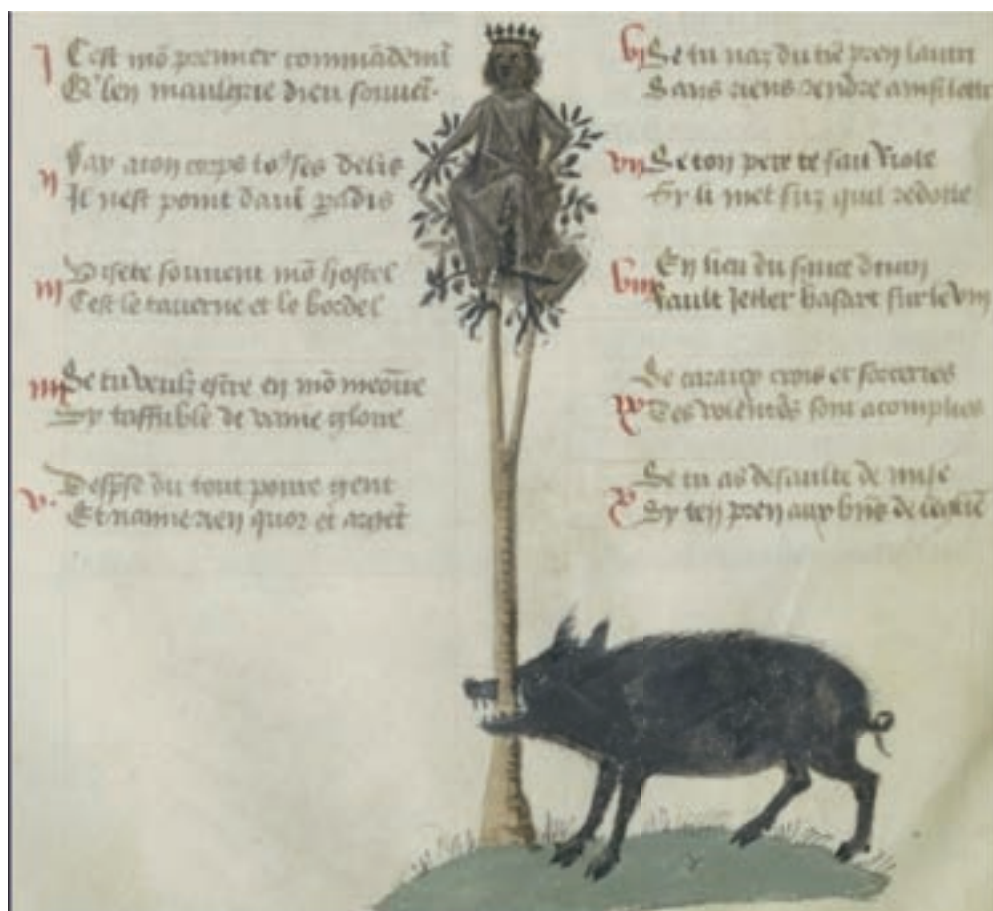 j Cest mō premier commādemēt
Q' len maulgrie dieu souuēt.
ij Fay a ton corps to9 ses delis
Il nest point dautē padis
iij Visete souuent mō hostel
Cest le tauerne et le bordel
iiij Se tu veulz estre en mō meōire
Sy taffuble de vaine gloire
v. Desp̄se du tout poure gent
Et namie rien quor et argēt
vj Se tu nas du tiē pren lautrui
Sans riens rendre
vij Se ton pere te fait
Sy li met sus quil redotte
viij En lieu du seruice deuin
vault Jetter hasart sur le vin
ix Se caraux crois et sorceries
Tes volentés sont acomplies
x Se tu as defaulte de mise
Sy ten pren aux biēs de